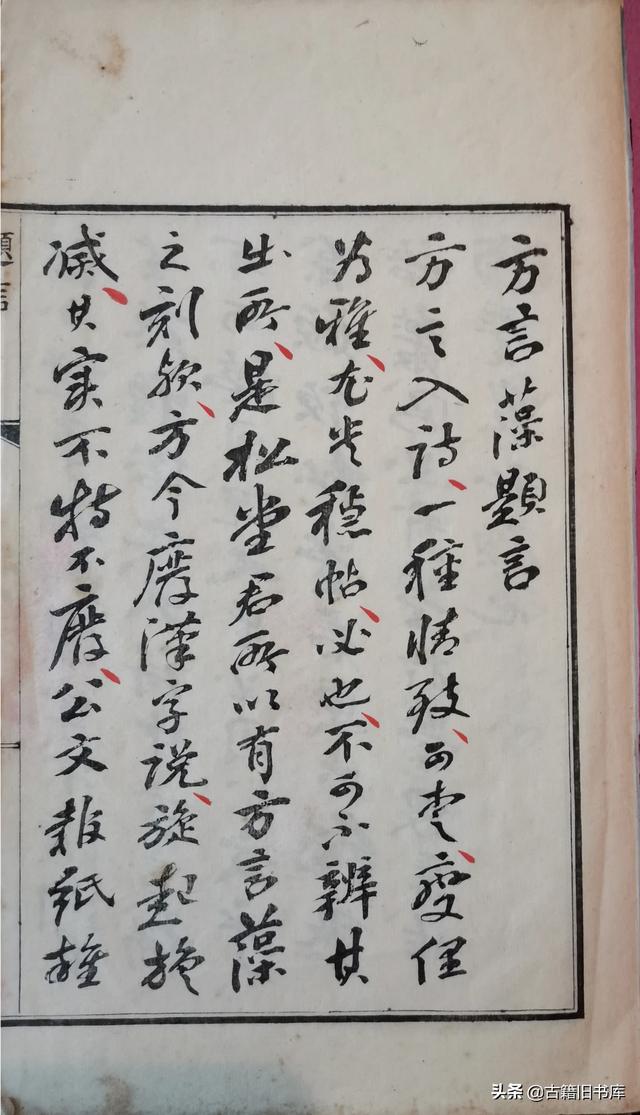 方言藻題言
方言入詩一種情致可ум 變俚
為雅尤貴穩帖必也不可不辨其
出所是松堂君所以有方言藻
之刻歟方今廢漢字說旋起旋
滅其実不特不廢公文報紙雜
題言
头条 @古籍旧书库